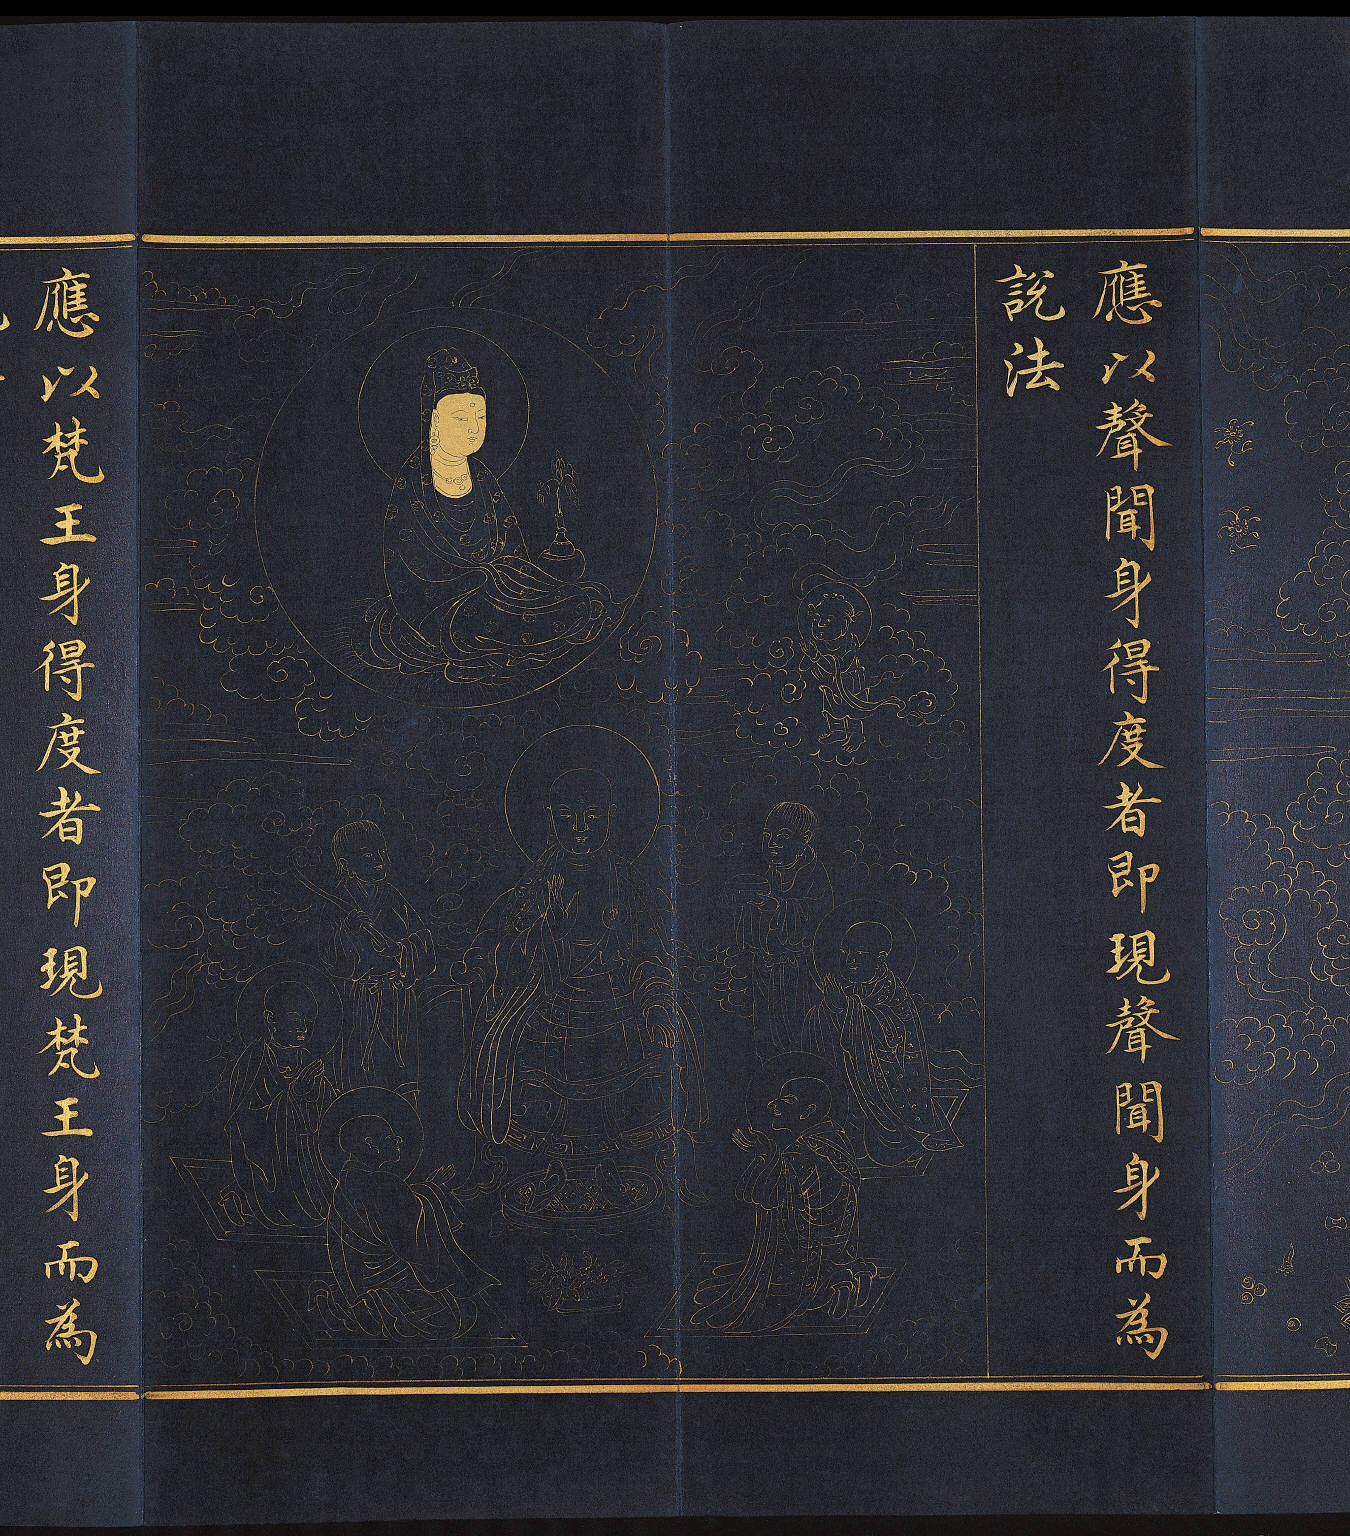 應以聲聞身得度者即現聲聞身而為
說法
應以梵王身得度者即現梵王身而為